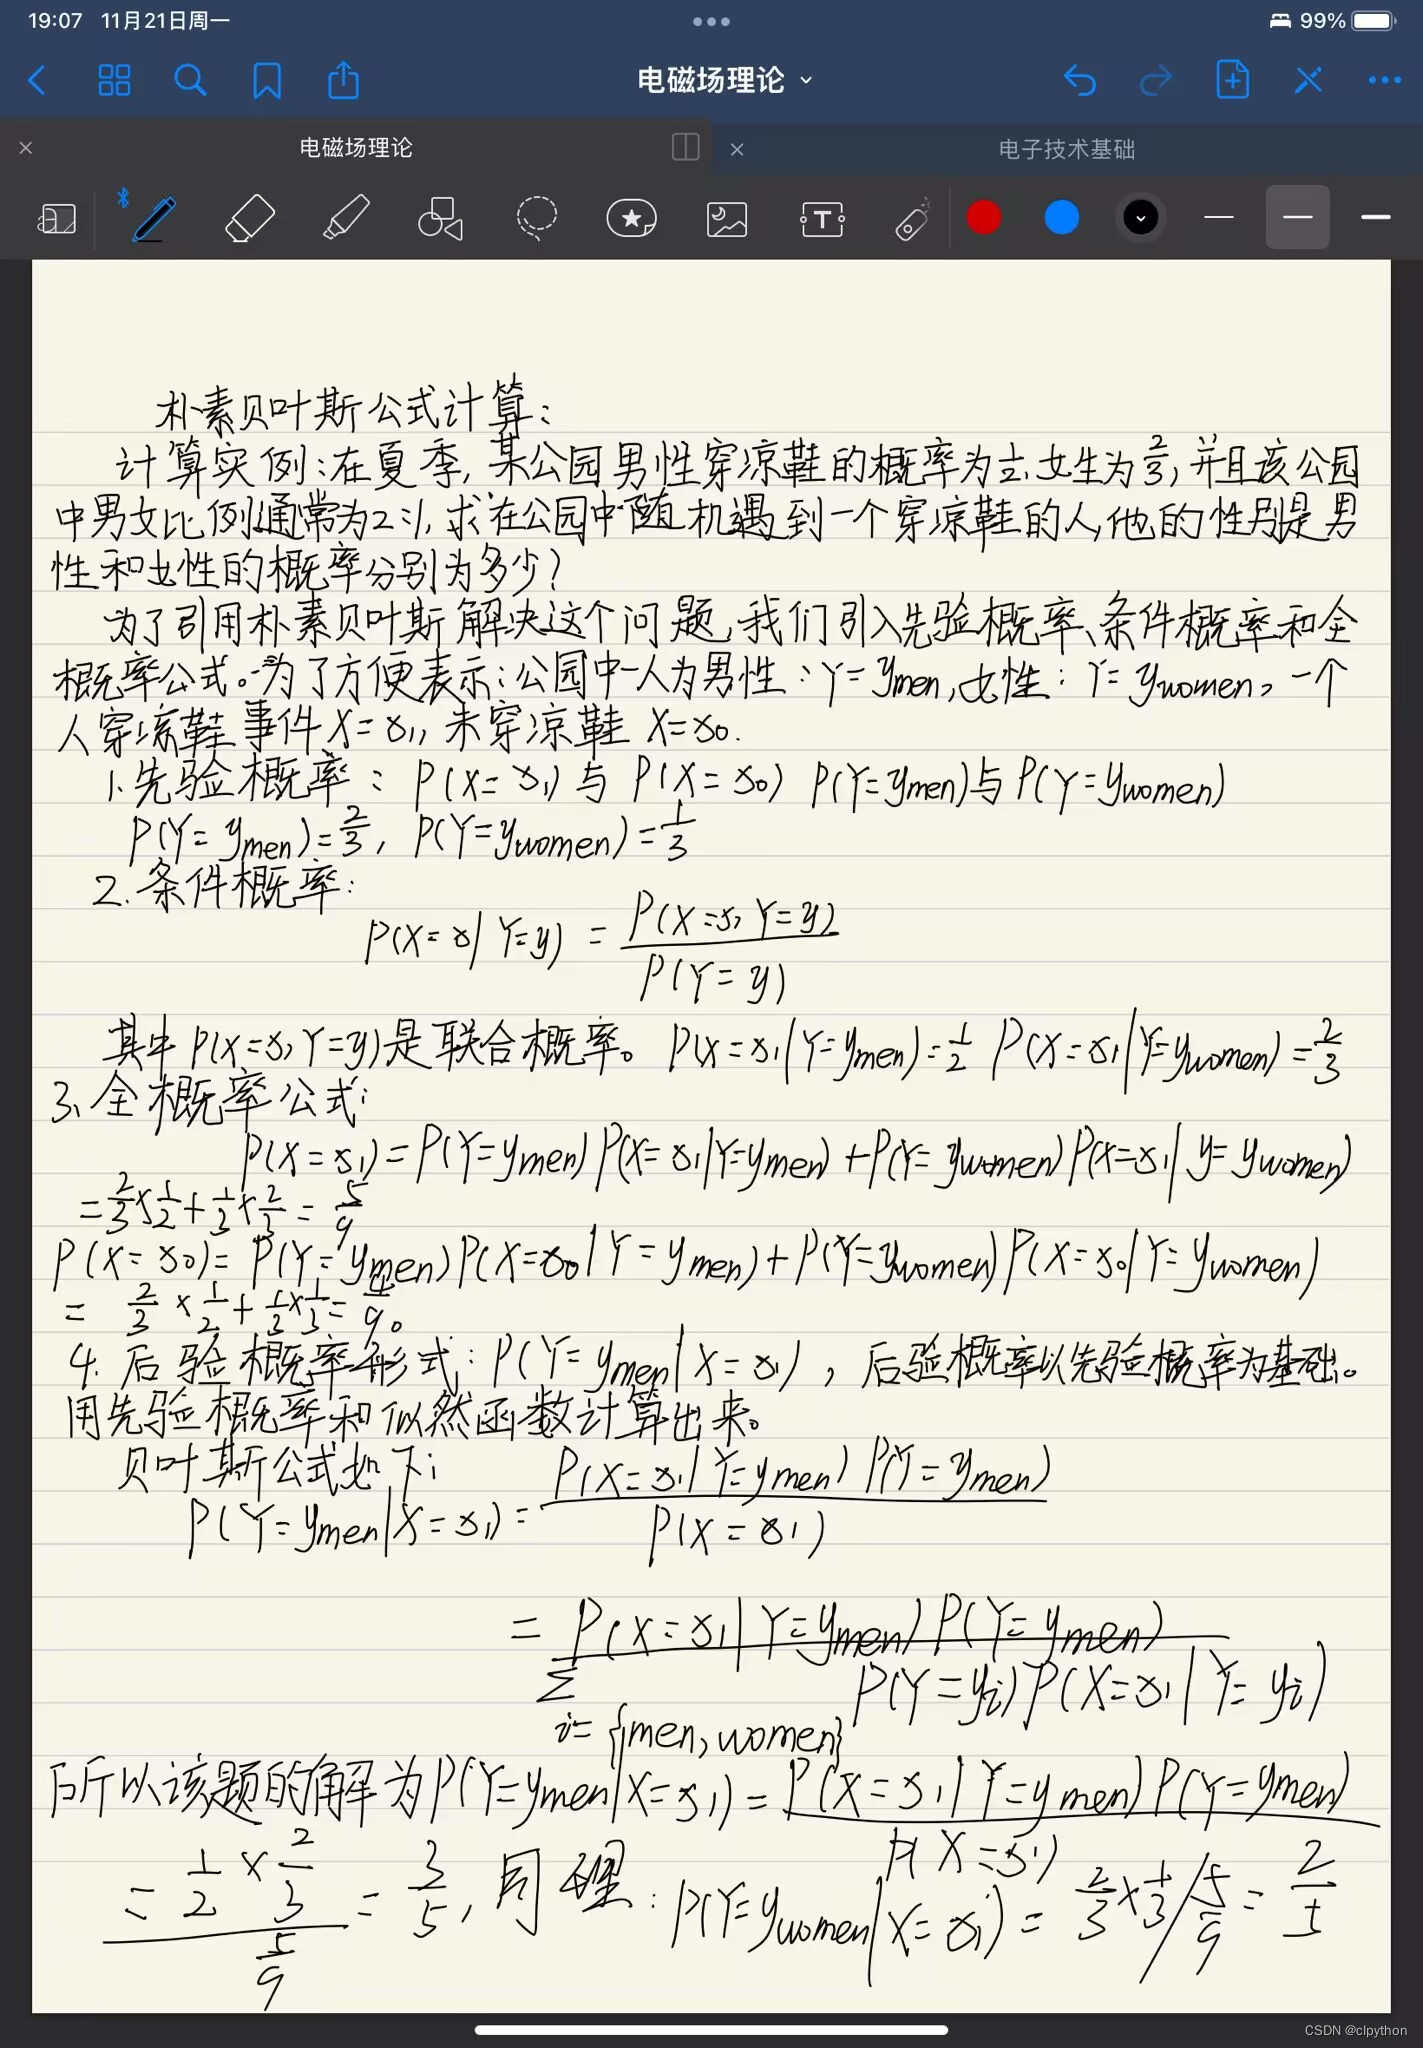 19:07 11月21日周一
99%
电磁场理论
电磁场理论
电子技术基础
朴素贝叶斯公式计算:
计算实例:在夏季,某公园男性穿凉鞋的概率为1/2,女生为2/3,并且该公园
中男女比例通常为2:1,求在公园中随机遇到一个穿凉鞋的人,他的性别是男
性和女性的概率分别为多少?
为了引用朴素贝叶斯解决这个问题,我们引入先验概率、条件概率和全
概率公式。为了方便表示:公园中一人为男性:Y=y_men,女性:Y=y_women,一个
人穿凉鞋事件X=x₁,未穿凉鞋X=x₀.
1.先验概率:P(X=x₁)与P(X=x₀) P(Y=y_men)与P(Y=y_women)
P(Y=y_men)=2/3, P(Y=y_women)=1/3
2.条件概率:
P(X=x|Y=y) = P(X=x,Y=y)/P(Y=y)
其中P(X=x,Y=y)是联合概率。P(X=x₁|Y=y_men)=1/2 P(X=x₁|Y=y_women)=2/3
3、全概率公式:
P(X=x₁)=P(Y=y_men)P(X=x₁|Y=y_men)+P(Y=y_women)P(X=x₁|y=y_women)
=2/3×1/2+1/3×2/3=5/9
P(X=x₀)=P(Y=y_men)P(X=x₀|Y=y_men)+P(Y=y_women)P(X=x₀|Y=y_women)
= 2/3×1/2+1/3×1/3=4/9。
4.后验概率形式:P(Y=y_men|X=x₁),后验概率以先验概率为基础。
用先验概率和似然函数计算出来。
贝叶斯公式如下:
P(Y=y_men|X=x₁)= P(X=x₁|Y=y_men)P(Y=y_men)/P(X=x₁)
= P(X=x₁|Y=y_men)P(Y=y_men)/Σ i={men,women} P(Y=yi)P(X=x₁|Y=yi)
所以该题的解为P(Y=y_men|X=x₁)=P(X=x₁|Y=y_men)P(Y=y_men)/P(X=x₁)
= 1/2×2/3/5/9 = 3/5, 同理:P(Y=y_women|X=x₁)= 2/3×1/3/5/9 = 2/5
CSDN @clpython